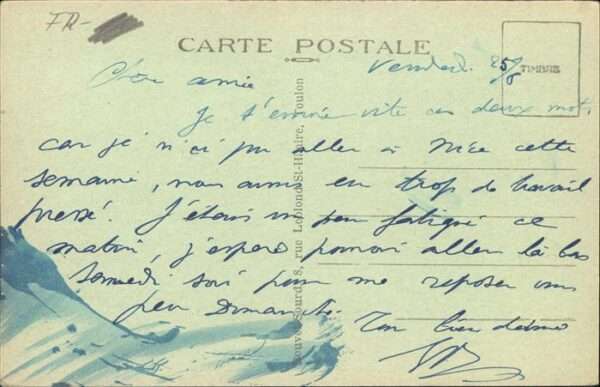 FR-
CARTE POSTALE
TIMBRE
Vendredi 25/8
Chère amie
Je t'envoie vite ces deux mots,
car je n'ai pu aller à Nice cette
semaine, nous avons eu trop de travail
pressé. J'étais un peu fatigué ce
matin, j'espère pouvoir aller là bas
Samedi soir pour me reposer un
peu Dimanche.
Ton bien
rue Leblond-St-Hilaire, Toulon